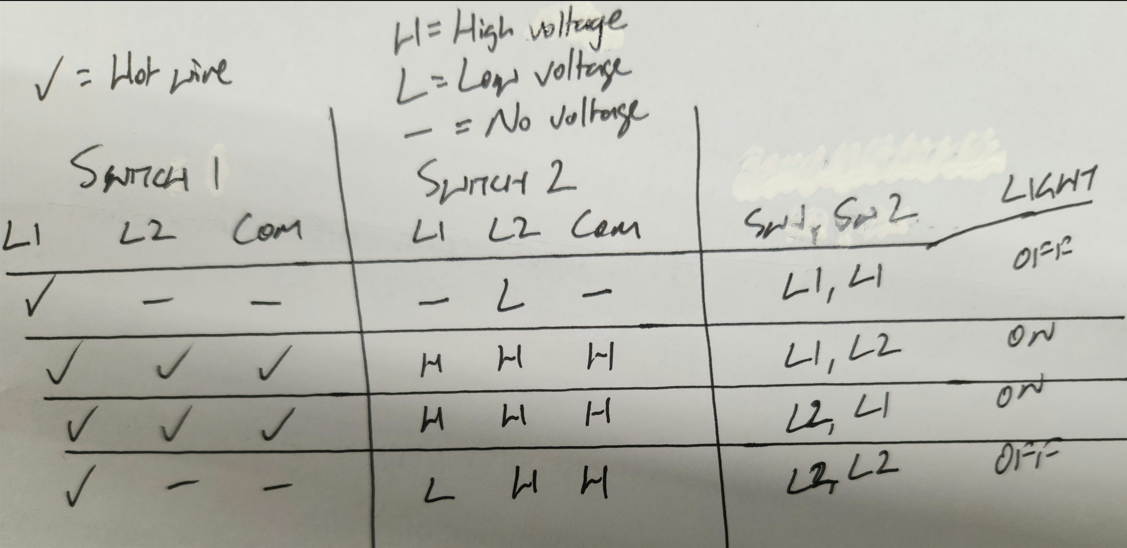 H = High voltage
✓ = Hot wire
L = Low voltage
— = No voltage
SWITCH 1 SWITCH 2
L1 L2 Com L1 L2 Com SW1, SW2 LIGHT
✓ — — — L — L1, L1 OFF
✓ ✓ ✓ H H H L1, L2 ON
✓ ✓ ✓ H H H L2, L1 ON
✓ — — L H H L2, L2 OFF